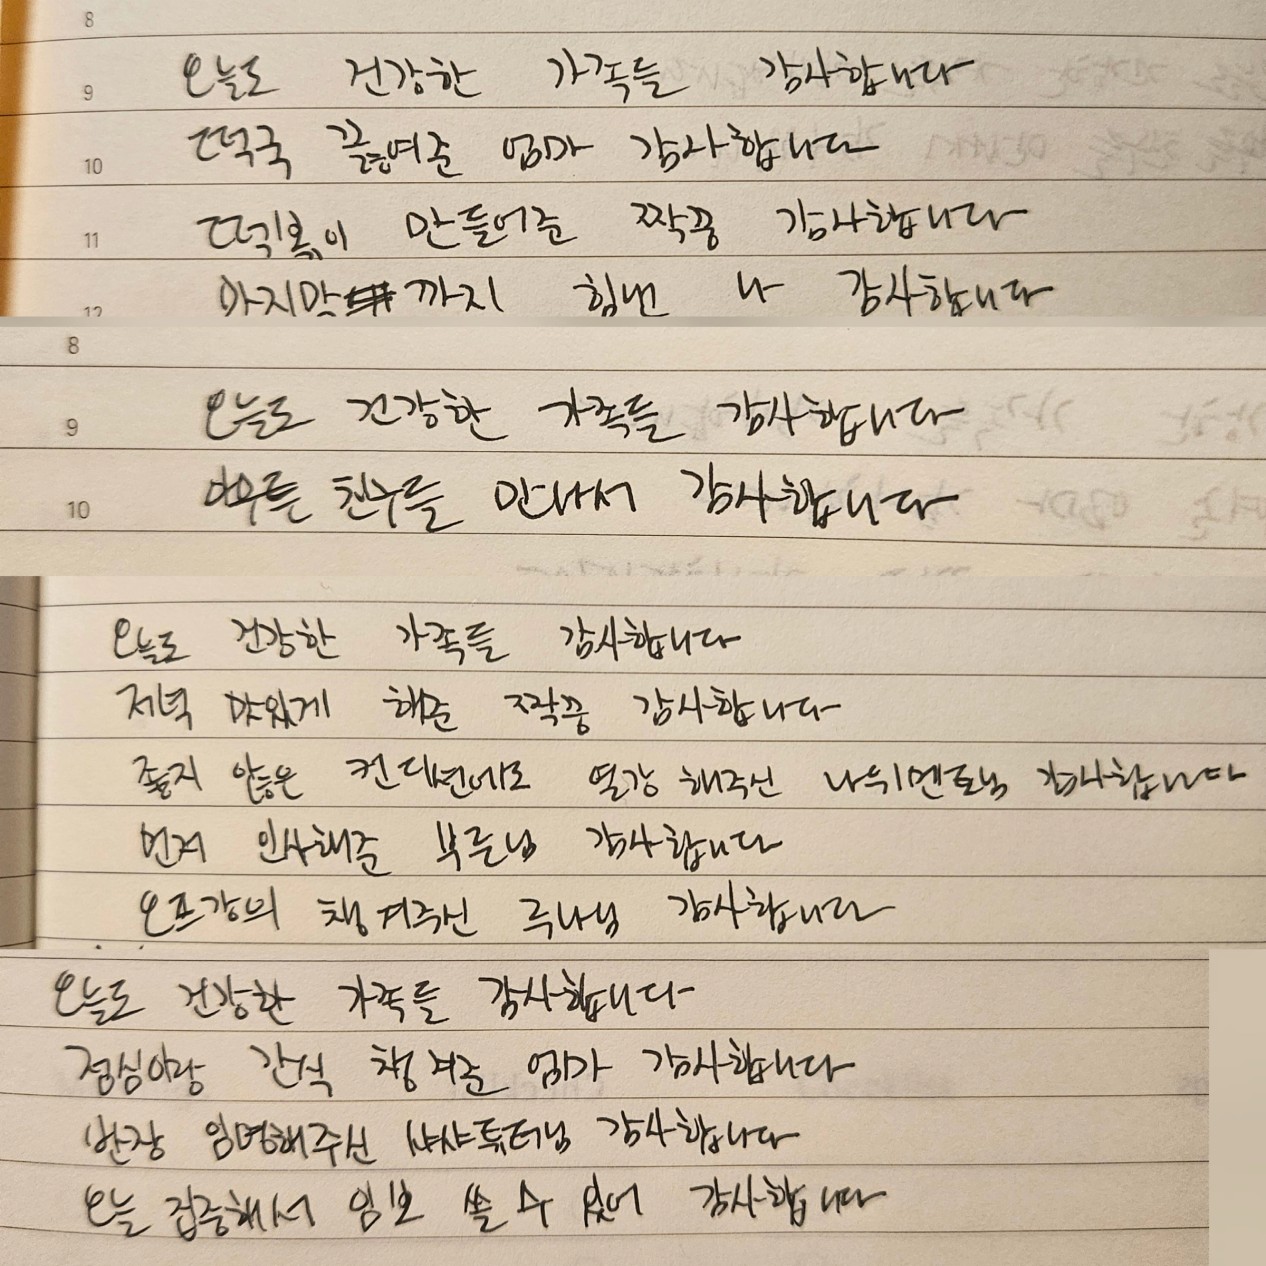 8
9 오늘도 건강한 가족들 감사합니다
10 떡국 끓여준 엄마 감사합니다
11 떡볶이 만들어준 짝꿍 감사합니다
12 마지막까지 힘낸 나 감사합니다
8
9 오늘도 건강한 가족들 감사합니다
10 친구들 만나서 감사합니다
오늘도 건강한 가족들 감사합니다
저녁 맛있게 해준 짝꿍 감사합니다
좋지 않은 컨디션에도 열강 해주신 나위멘토님 감사합니다
먼저 인사해준 부른님 감사합니다
오프강의 챙겨주신 주나님 감사합니다
오늘도 건강한 가족들 감사합니다
점심이랑 간식 챙겨준 엄마 감사합니다
반장 임명해주신 샤샤튜터님 감사합니다
오늘 집중해서 임보 쓸 수 있어 감사합니다